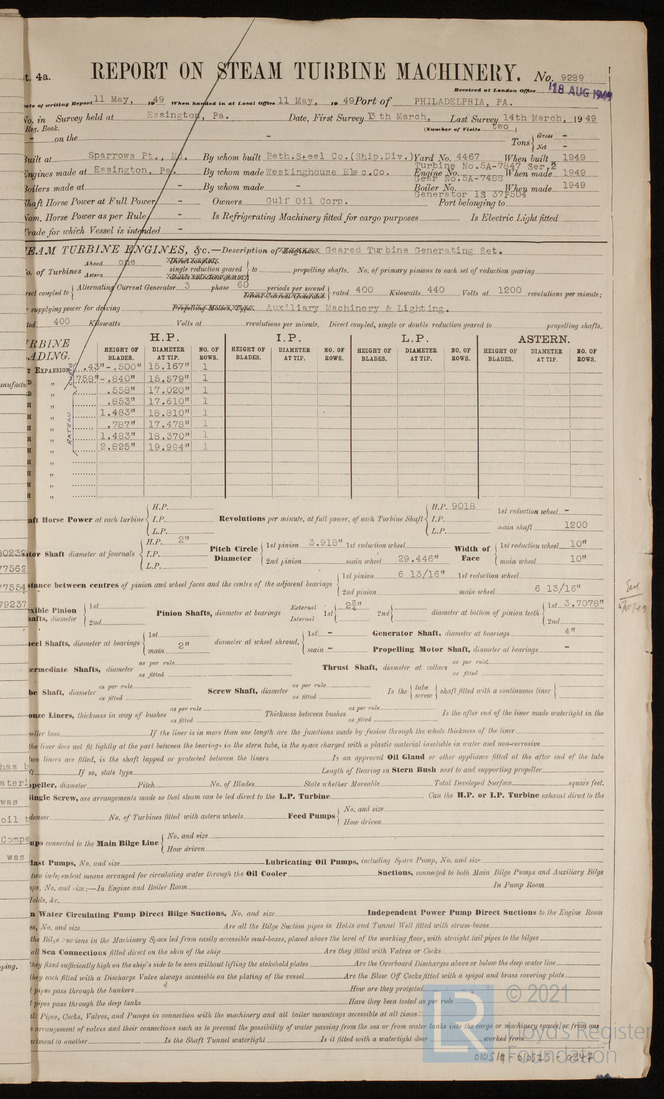 t. 4a.
REPORT ON STEAM TURBINE MACHINERY. No. 9289
Received at London Office 18 AUG 1949
ate of writing Report 11 May, 1949 When handed in at Local Office 11 May, 1949 Port of PHILADELPHIA, PA.
No. in Survey held at Essington, Pa. Date, First Survey 13th March, Last Survey 14th March, 1949
Reg. Book. (Number of Visits two)
on the - Tons Gross - Net -
Built at Sparrows Pt., Md. By whom built Beth. Steel Co. (Ship. Div.) Yard No. 4467 When built 1949
Engines made at Essington, Pa. By whom made Westinghouse Elec. Co. Engine No. Turbine No. 5A-7847 Ser. 2 Gear No. 5A-7488 When made 1949
Boilers made at - By whom made - Boiler No. When made 1949
Generator 1S 37P504
Shaft Horse Power at Full Power - Owners Gulf Oil Corp. Port belonging to
Nom. Horse Power as per Rule - Is Refrigerating Machinery fitted for cargo purposes Is Electric Light fitted
Trade for which Vessel is intended -
EAM TURBINE ENGINES, &c.—Description of Engines Geared Turbine Generating Set.
No. of Turbines Ahead one Astern single reduction geared to propelling shafts. No. of primary pinions to each set of reduction gearing
rect coupled to Alternating Current Generator 3 phase 60 periods per second rated 400 Kilowatts 440 Volts at 1200 revolutions per minute;
supplying power for driving Propelling Motors, Type Auxiliary Machinery & Lighting.
ted 400 Kilowatts Volts at revolutions per minute. Direct coupled, single or double reduction geared to propelling shafts.
URBINE ADING. H.P. I.P. L.P. ASTERN.
HEIGHT OF BLADES. DIAMETER AT TIP. NO. OF ROWS. HEIGHT OF BLADES. DIAMETER AT TIP. NO. OF ROWS. HEIGHT OF BLADES. DIAMETER AT TIP. NO. OF ROWS. HEIGHT OF BLADES. DIAMETER AT TIP. NO. OF ROWS.
T EXPANSION .43"-.500" 15.167" 1
.758"-.840" 15.579" 1
.558" 17.020" 1
.853" 17.610" 1
1.483" 18.810" 1
.787" 17.478" 1
1.483" 18.370" 1
2.825" 19.994" 1
RATEAU
aft Horse Power at each turbine H.P. I.P. L.P. Revolutions per minute, at full power, of each Turbine Shaft H.P. 9018 I.P. L.P. 1st reduction wheel - main shaft 1200
otor Shaft diameter at journals H.P. 2" I.P. L.P. Pitch Circle Diameter 1st pinion 3.918" 1st reduction wheel 2nd pinion main wheel 29.446" Width of Face 1st reduction wheel 10" main wheel 10"
stance between centres of pinion and wheel faces and the centre of the adjacent bearings 1st pinion 6 13/16" 1st reduction wheel 2nd pinion main wheel 6 13/16"
exible Pinion hafts, diameter 1st 2nd Pinion Shafts, diameter at bearings External Internal 1st 2¾" 2nd diameter at bottom of pinion teeth 1st 3.7078" 2nd
eel Shafts, diameter at bearings 1st main 2" diameter at wheel shroud, 1st - main - Generator Shaft, diameter at bearings 4"
Propelling Motor Shaft, diameter at bearings -
ermediate Shafts, diameter as per rule as fitted Thrust Shaft, diameter at collars as per rule as fitted
be Shaft, diameter as per rule as fitted Screw Shaft, diameter as per rule as fitted Is the tube screw shaft fitted with a continuous liner
onze Liners, thickness in way of bushes as per rule as fitted Thickness between bushes as per rule as fitted Is the after end of the liner made watertight in the
eller boss If the liner is in more than one length are the junctions made by fusion through the whole thickness of the liner
the liner does not fit tightly at the part between the bearings in the stern tube, is the space charged with a plastic material insoluble in water and non-corrosive
two liners are fitted, is the shaft lapped or protected between the liners Is an approved Oil Gland or other appliance fitted at the after end of the tube
If so, state type Length of Bearing in Stern Bush next to and supporting propeller
opeller, diameter Pitch No. of Blades State whether Moveable Total Developed Surface square feet.
Single Screw, are arrangements made so that steam can be led direct to the L.P. Turbine Can the H.P. or I.P. Turbine exhaust direct to the
denser No. of Turbines fitted with astern wheels Feed Pumps No. and size How driven
mps connected to the Main Bilge Line No. and size How driven
llast Pumps, No. and size Lubricating Oil Pumps, including Spare Pump, No. and size
two independent means arranged for circulating water through the Oil Cooler Suctions, connected to both Main Bilge Pumps and Auxiliary Bilge
ps, No. and size;—In Engine and Boiler Room In Pump Room
Holds, &c.
n Water Circulating Pump Direct Bilge Suctions, No. and size Independent Power Pump Direct Suctions to the Engine Room
es, No. and size Are all the Bilge Suction pipes in Holds and Tunnel Well fitted with strum-boxes
the Bilge Suctions in the Machinery Space led from easily accessible mud-boxes, placed above the level of the working floor, with straight tail pipes to the bilges
all Sea Connections fitted direct on the skin of the ship Are they fitted with Valves or Cocks
they fixed sufficiently high on the ship's side to be seen without lifting the stokehold plates Are the Overboard Discharges above or below the deep water line
they each fitted with a Discharge Valve always accessible on the plating of the vessel Are the Blow Off Cocks fitted with a spigot and brass covering plate
t pipes pass through the bunkers How are they protected
t pipes pass through the deep tanks Have they been tested as per rule
all Pipes, Cocks, Valves, and Pumps in connection with the machinery and all boiler mountings accessible at all times
e arrangement of valves and their connections such as to prevent the possibility of water passing from the sea or from water tanks into the cargo or machinery spaces, or from one
rtment to another Is the Shaft Tunnel watertight Is it fitted with a watertight door worked from
© 2021
Lloyd's Register
Foundation